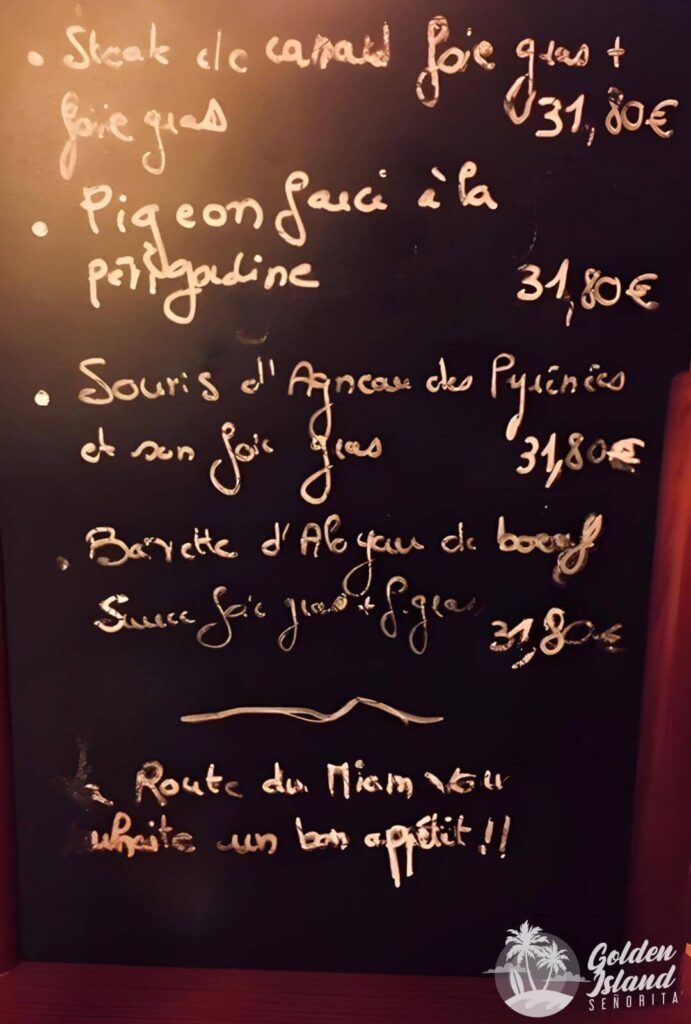 • Steak de canard foie gras +
foie gras 31,80€
• Pigeon farci à la
périgourdine 31,80€
• Souris d'Agneau des Pyrénées
et son foie gras 31,80€
• Bavette d'Aloyau de boeuf
Sauce foie gras + f. gras 31,80€
Route du Miam vou
uhaite un bon appétit !!
Golden
Island
SEÑORITA